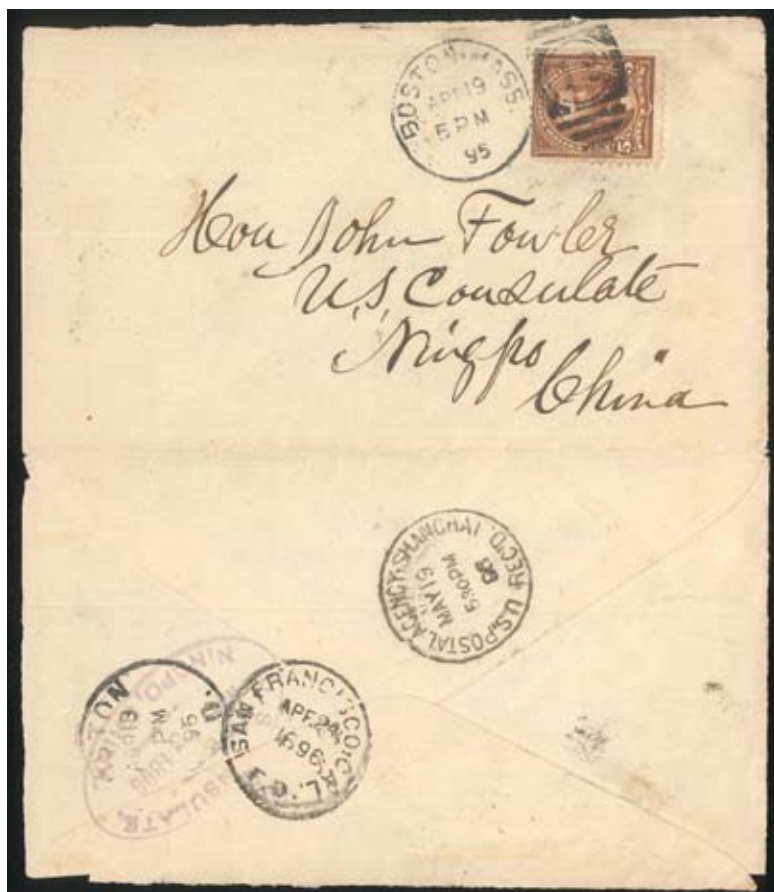 BOSTON, MASS.
APR 19
5 PM
95
Hon John Fowler
U.S. Consulate
Ningpo
China
U.S. POSTAL AGENCY. SHANGHAI.
REC'D.
MAY 19
530 PM
NINGPO
SAN FRANCISCO, CAL.
APR 24
1896
TON
19
PM
95
SULATE,